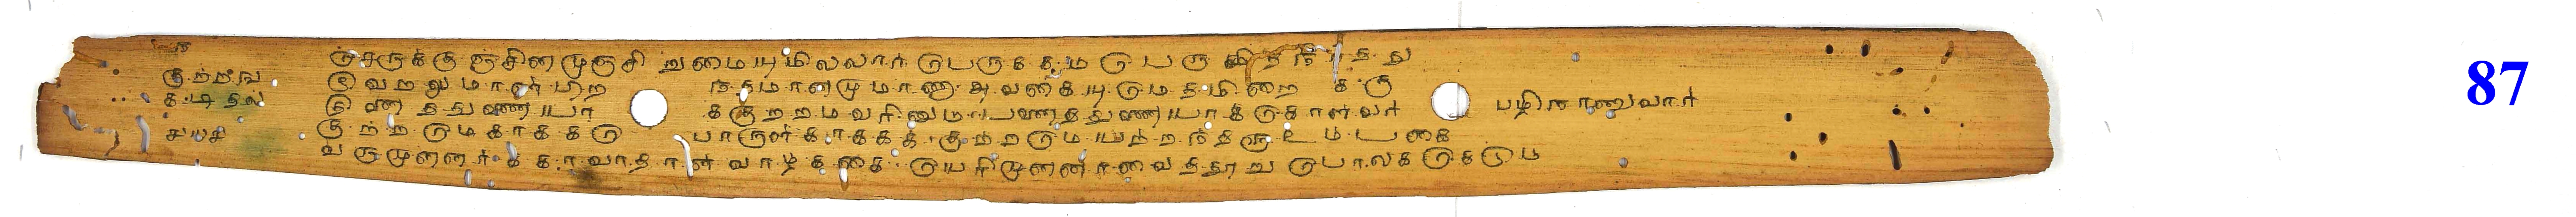 குற்றங
கடிதல
௪௰௪
செருககுஞசினமுஞசி றுமையுமிலலார் பெருககம பெருமிதநீரதது
இவறலுமாண்பிறந்தமானமுமாணாஉவகையுமேதமிறைககு
தினைததுணையாங்குறறமவரினும பனைததுணையாக்கொள்வர் பழிநாணுவார்
குற்றமேகாகக பொருள்காகக குற்றமேயற்றந்தரூஉம்பகை
வருமுனனர்ககாவாதான்வாழ்ககை யெரிமுனனர்வைததூறு போலகெகெடும
87